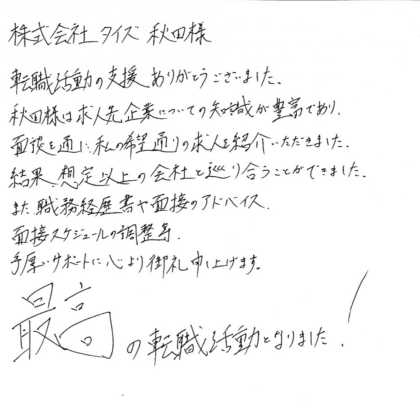 株式会社タイズ 秋田様
転職活動の支援ありがとうございました。
秋田様は求人先企業についての知識が豊富であり、
面談を通じ、私の希望通りの求人を紹介いただきました。
結果、想定以上の会社と巡り合うことができました。
また職務経歴書や面接のアドバイス、
面接スケジュールの調整等、
手厚いサポートに心より御礼申し上げます。
最高の転職活動となりました!